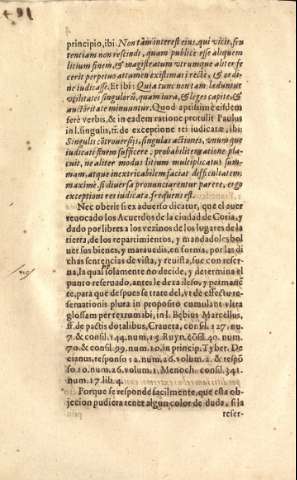 principio, ibi. Non tàm interest eius, qui vicit, sen
tentiam non rescindi, quam publicè esse aliquem
litium finem, & magistratum vtrumque abter fe
cerit perpetuo attamen existimari rectè, & ordi-
ne iudicasse. Et ibi: Quia tunc non tam læduntur
vtilitates singulorũ, quam iura, & leges capite, &
auctoritate minuuntur. Quod aptissimè eisdem
ferè verbis, & in eadem ratione protulit Paulus
in l. singulis, ff. de exceptione rei iudicatæ, ibi:
Singulis cõtrouersijs, singulas actiones, vnum que
iudicati finem sufficere: probabili ratione pla-
cuit, ne aliter modus litium multiplicatus sum-
mam, atque inextricabilem faciat difficultatem,
maximè si diuersa pronunciarentur parere, ergo
exceptioni rei iudicatæ frequens est.
Nec oberit si ex aduerso dicatur, que el auer
reuocado los Acuerdos de la ciudad de Coria, y
dado por libres a los vezinos de los lugares de la
tierra, de los repartimientos, y mandadoles bol
uer sus bienes, y marauedis, en forma, por las di
chas sentencias de vista, y reuista, fue con reser-
ua, la qual solamente no decide, y determina el
punto reseruado, antes le dexa ileso, y permane
ce, para que despues se trate del, vt de effectu re-
seruationis plura in proposito cumulant vltra
glossam per textum ibi, in l. Bębius Marcellus,
ff. de pactis dotalibus, Craueta, consil. 127. nu.
7. & consil. 144. num. 13. Ruyn. cõsil. 40. num.
70. & consil. 99. num. 10. in princip. Tyber. De
cianus, responso 12. num. 26. volum. 2. & respõ
so. 10. num. 26. volum. 1. Menoch. consil. 341.
num. 17. lib. 4.
Porque se responde facilmente, que esta ob-
jeccion pudiera tener algun color de duda, si la
reser-